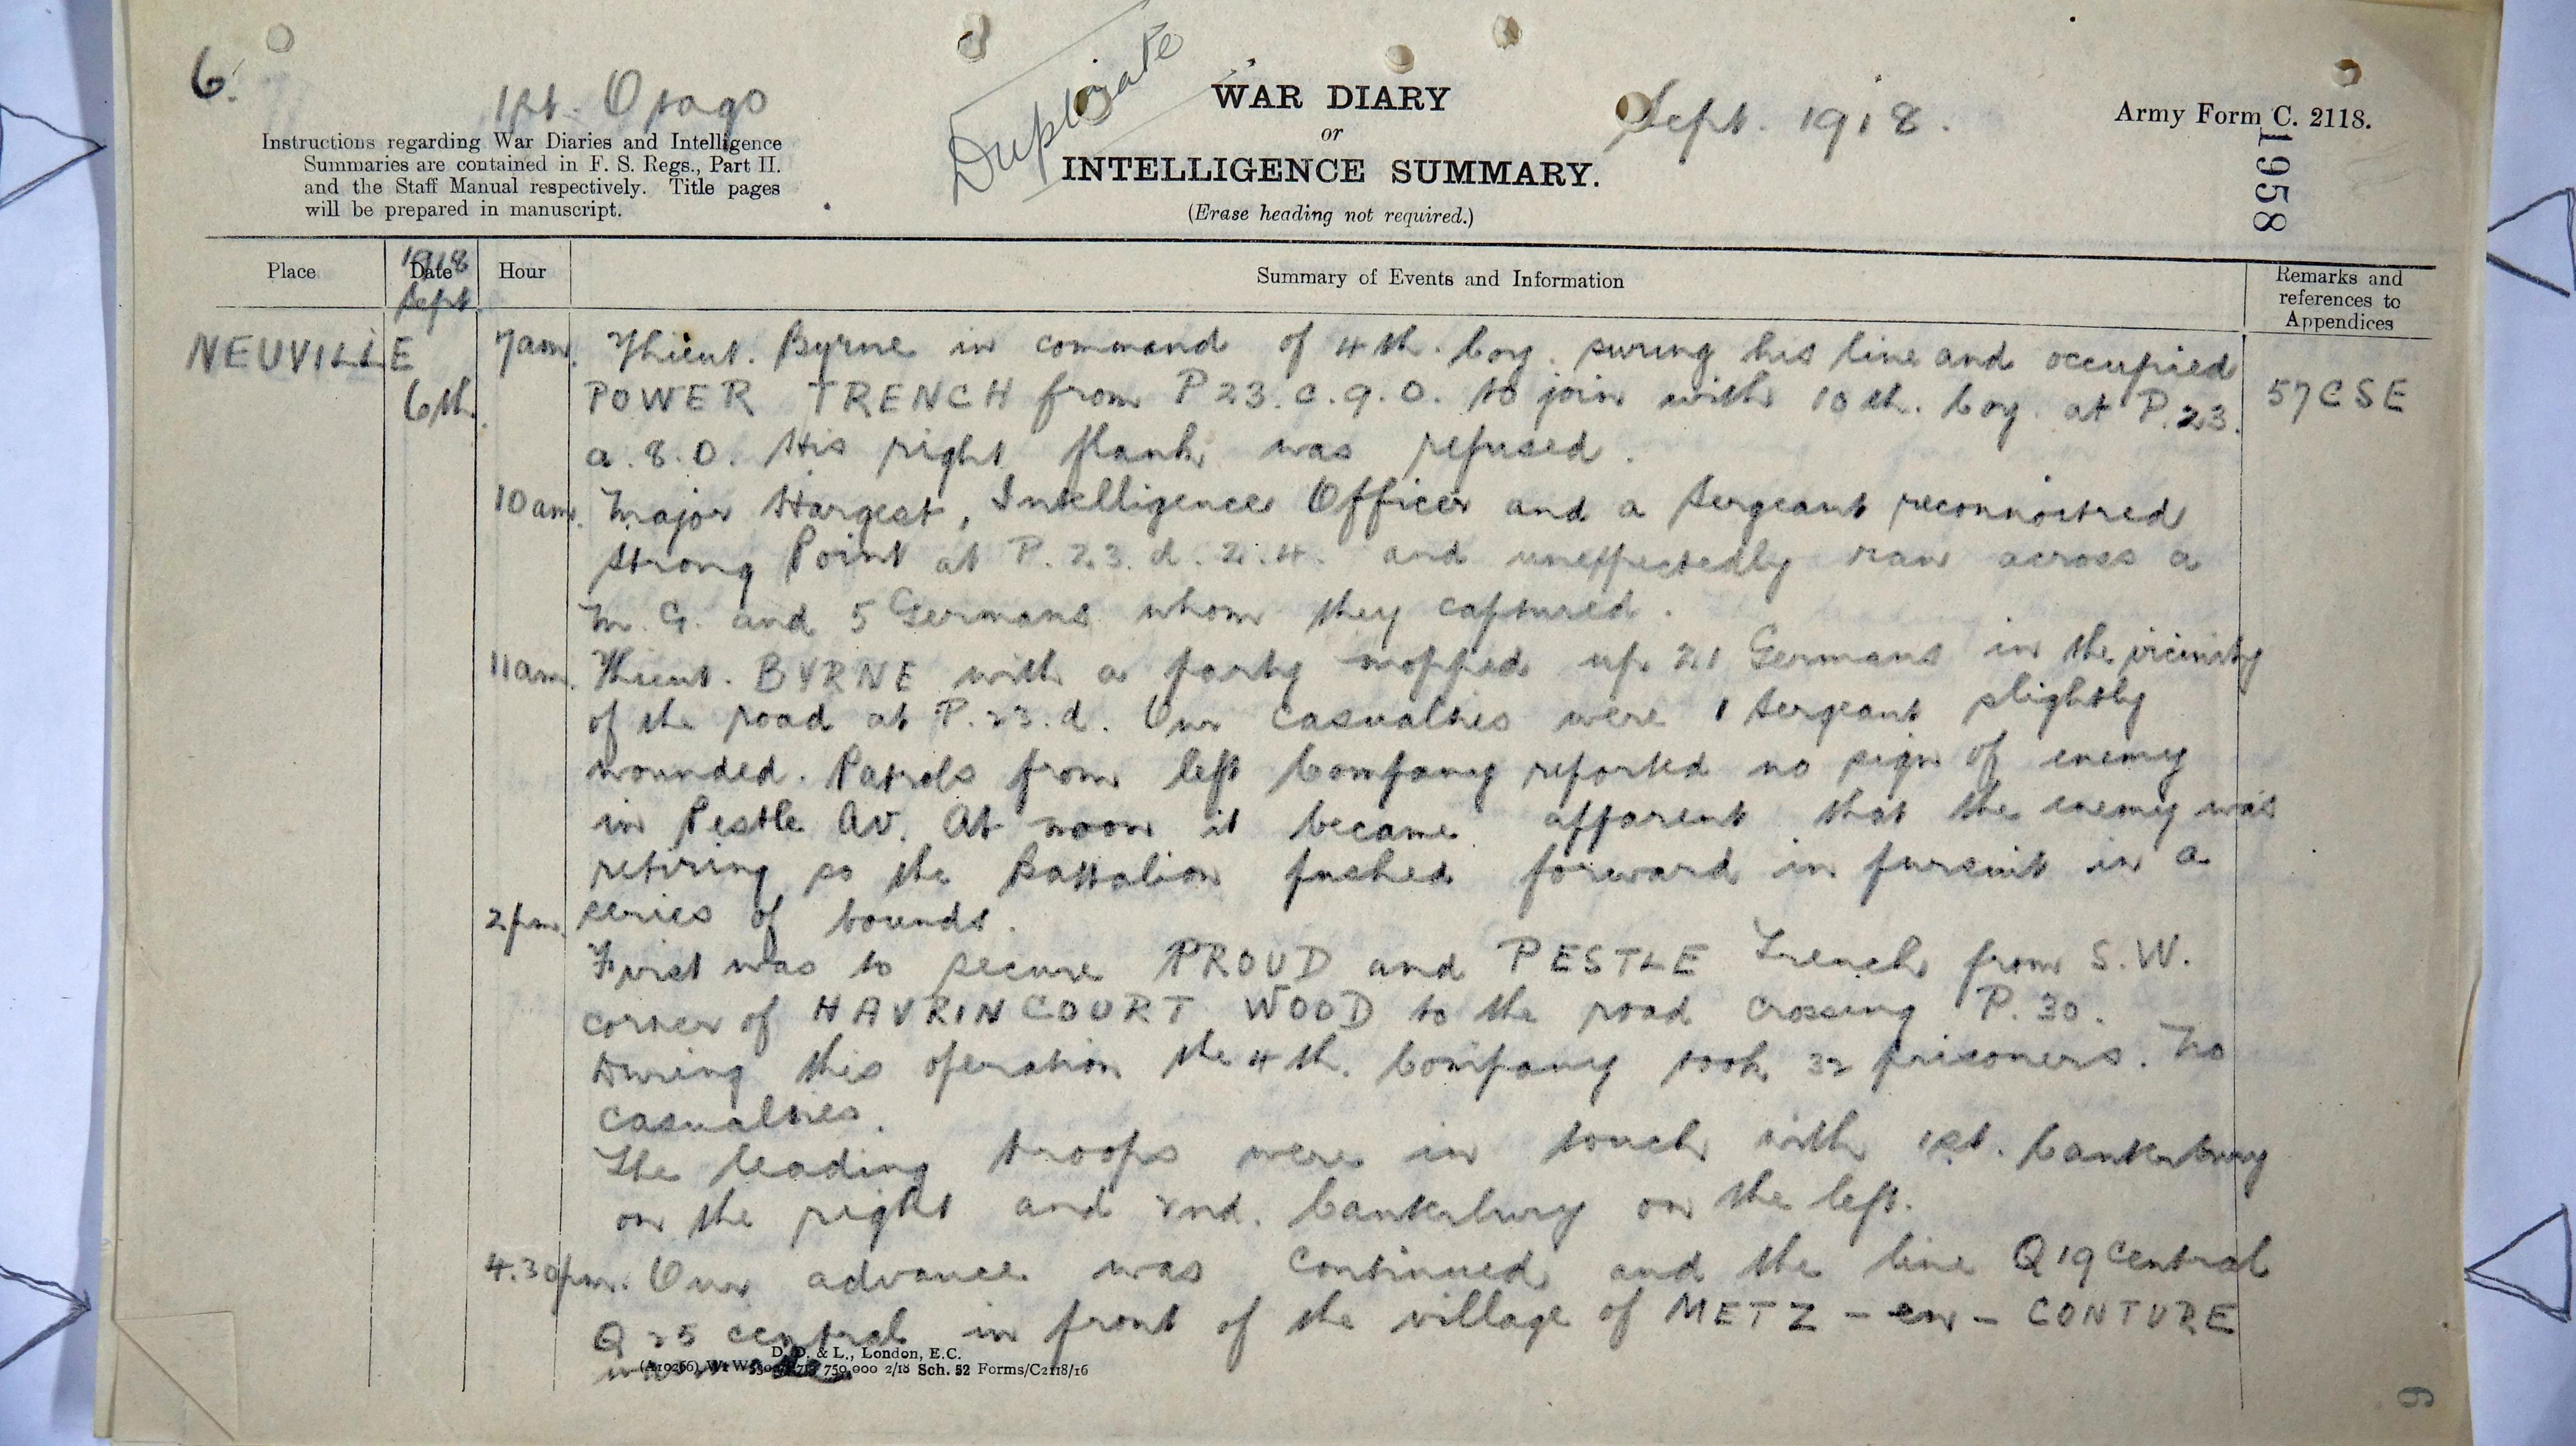 6.
1st. Otago
Duplicate
WAR DIARY
or
INTELLIGENCE SUMMARY.
(Erase heading not required.)
Sept. 1918.
Army Form C. 2118.
1958
Instructions regarding War Diaries and Intelligence
Summaries are contained in F. S. Regs., Part II.
and the Staff Manual respectively. Title pages
will be prepared in manuscript.
Place
Date
1918
Sept
Hour
Summary of Events and Information
Remarks and
references to
Appendices
NEUVILLE
6th.
7am. Lieut. Byrne in command of 4th. Coy. swung his line and occupied
POWER TRENCH from P23.c.9.0. to join with 10th. Coy. at P.23.
57CSE
a.8.0. His right flank was refused.
10am. Major Hargest, Intelligence Officer and a Sergeant reconnoitred
Strong Point at P.23.d.2.4. and unexpectedly ran across a
M.G. and 5 Germans whom they captured.
11am. Lieut. BYRNE with a party mopped up 21 Germans in the vicinity
of the road at P.23.d. Our casualties were 1 Sergeant slightly
wounded. Patrols from left Company reported no sign of enemy
in Pestle Av. At noon it became apparent that the enemy was
retiring so the Battalion pushed forward in pursuit in a
series of bounds.
2pm.
First was to secure PROUD and PESTLE Trench from S.W.
corner of HAVRINCOURT WOOD to the road crossing P.30.
During this operation the 4th. Company took 32 prisoners. No
casualties.
The leading troops were in touch with 1st. Canterbury
on the right and 2nd. Canterbury on the left.
4.30pm. Our advance was continued and the line Q19central
Q25 central in front of the village of METZ-en-CONTURE
D. D. & L., London, E.C.
Sch. 52 Forms/C2118/16
6